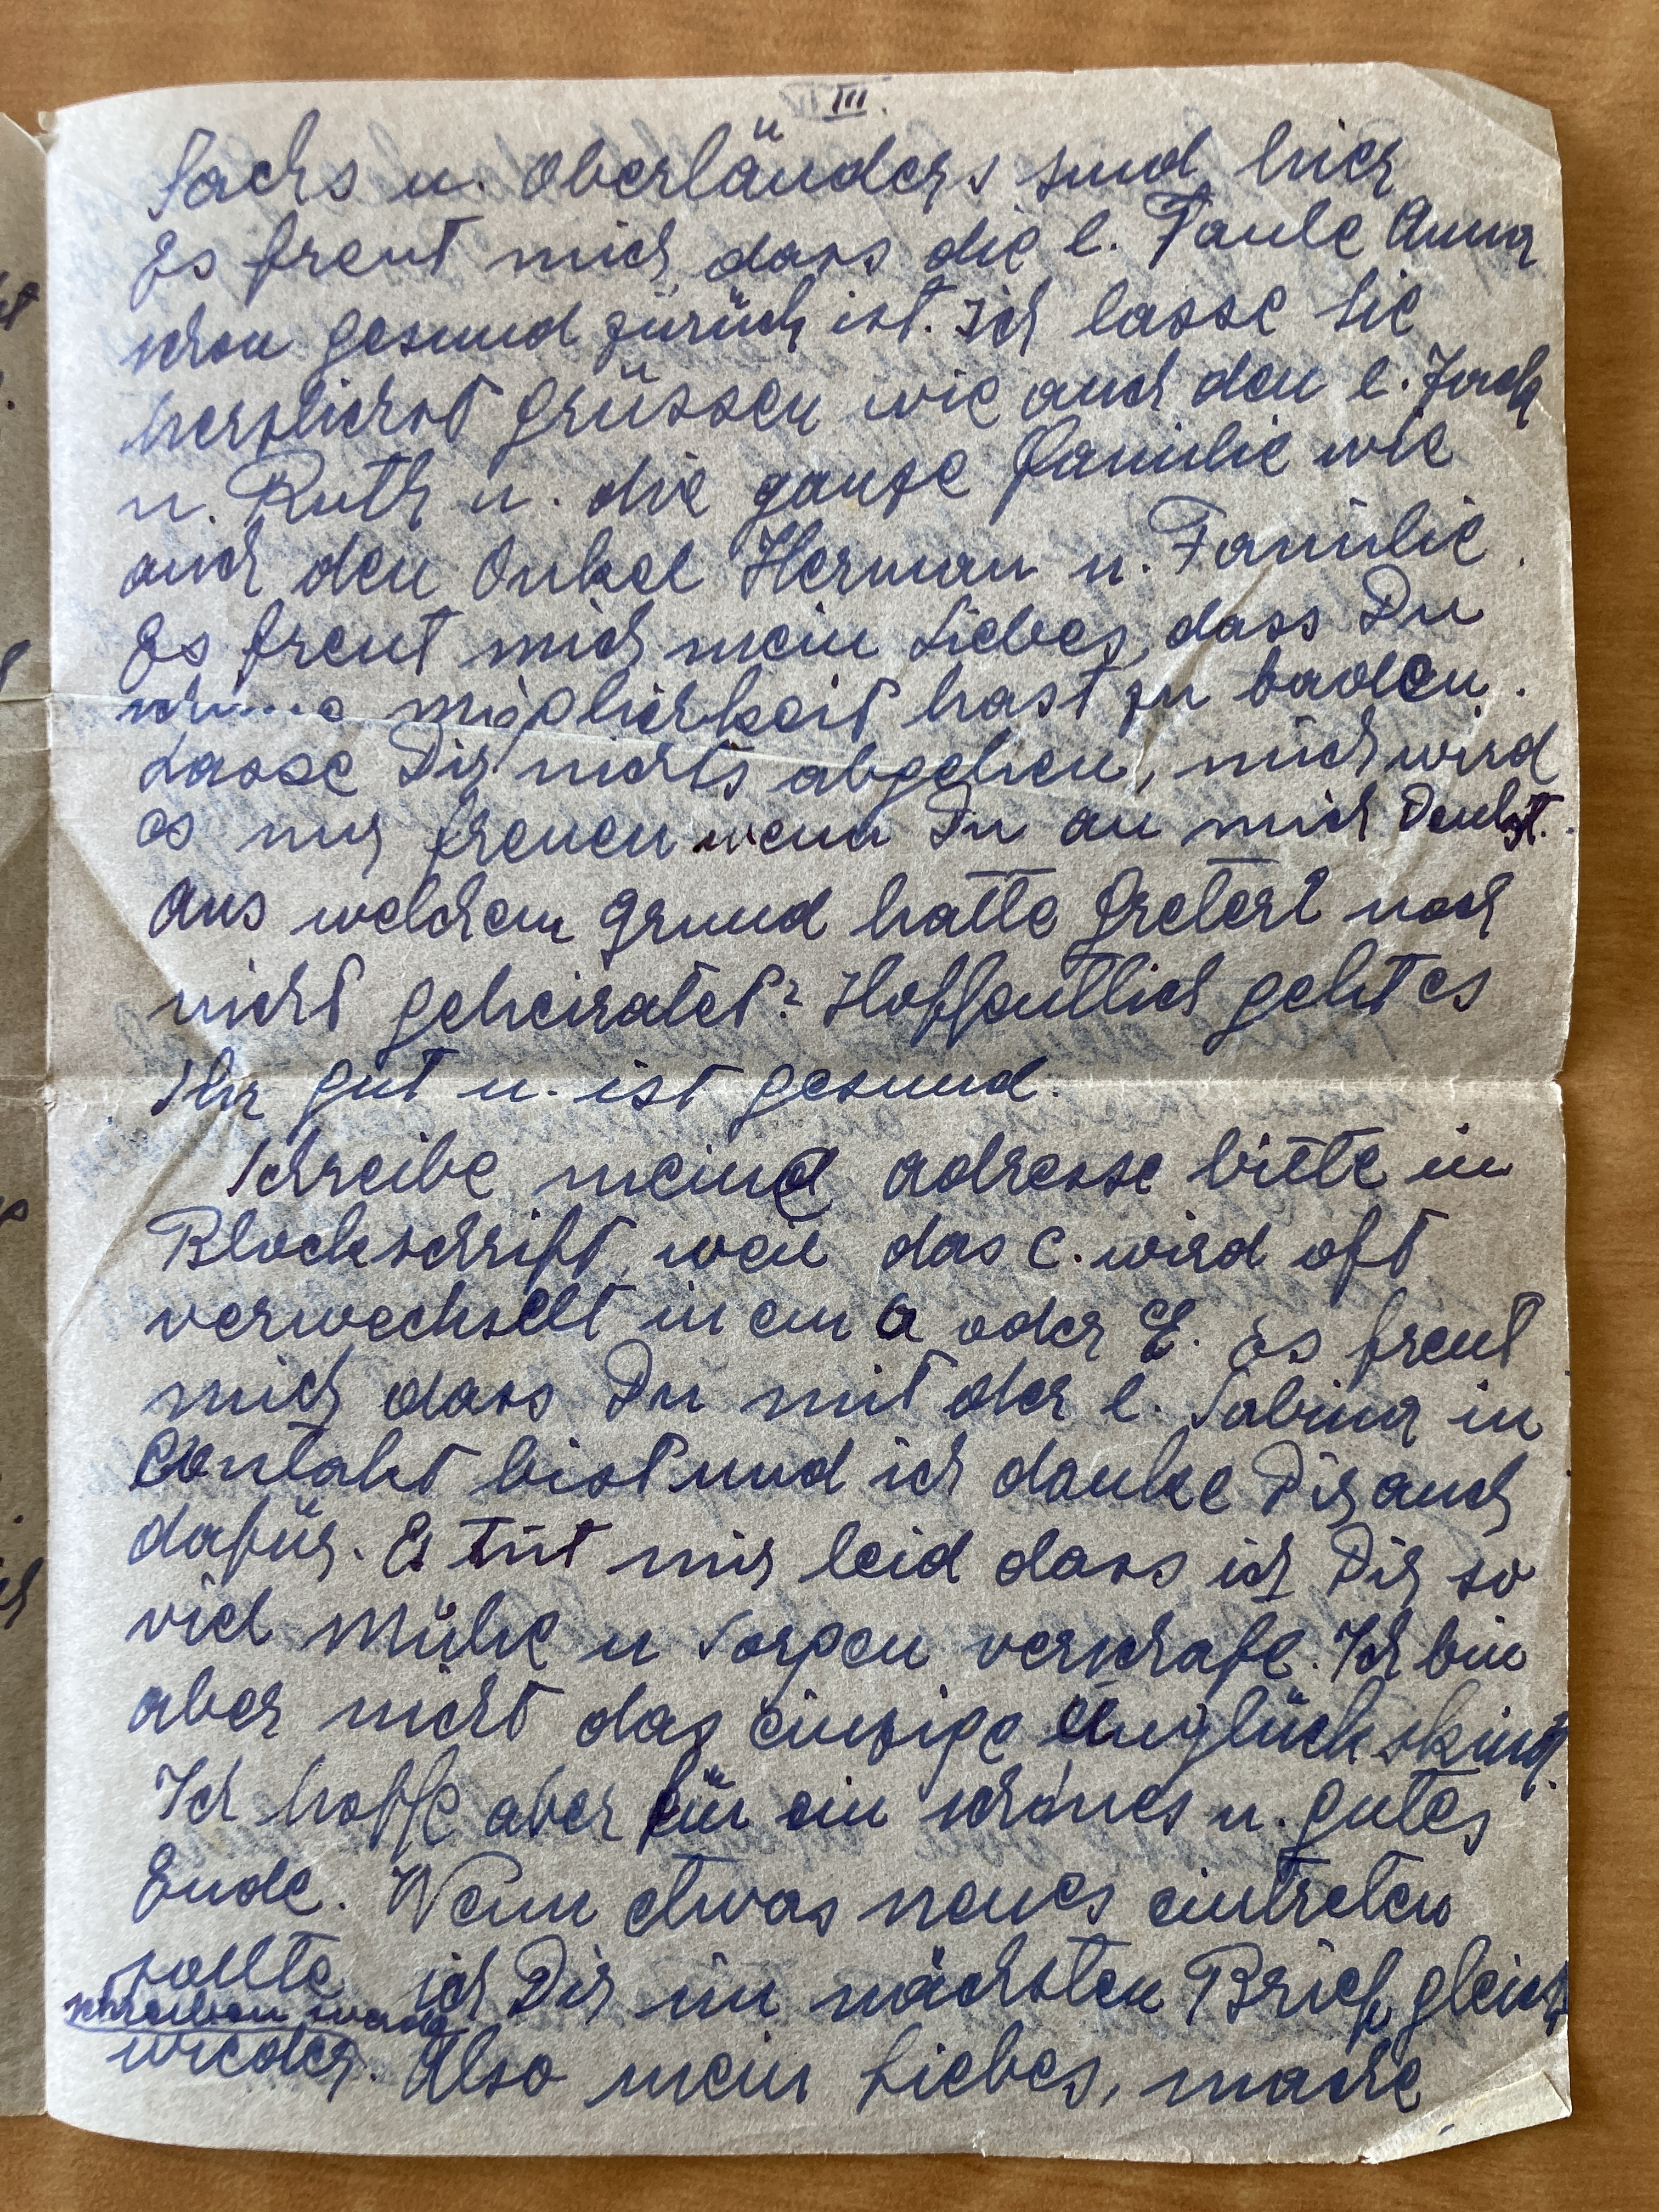 III.
Sachs u. Oberländers sind hier
Es freut mich dass die l. Tante Anna
schon gesund zürück ist. Ich lasse Sie
herzlichst grüssen wie auch den l. Jack
u. Ruth u. die ganze Familie wie
auch den Onkel Herman u. Familie.
Es freut mich mein Liebes, dass Du
möglichkeit hast zu baden.
Lasse Dir nichts abgehen, mich wird
es nur freuen wenn Du an mich Denkst.
Aus welchem grund hatte Greterl noch
nicht geheiratet? Hoffentlich geht es
Ihr gut u. ist gesund.
Schreibe meine adresse bitte in
Blockschrift, weil das C. wird oft
verwechselt in ein a oder E. Es freut
mich dass Du mit der l. Sabina in
Contakt bist und ich danke Dir auch
dafür. Es tut mir leid dass ich Dir so
viel Mühe u Sorgen verschafe. Ich bin
aber nicht das einzige Unglückskind.
Ich hoffe aber für ein schönes u. gutes
Ende. Wenn etwas neues eintreten
sollte ich Dir im nächsten Brief gleich
schreiben werde
wieder. Also mein Liebes, mache